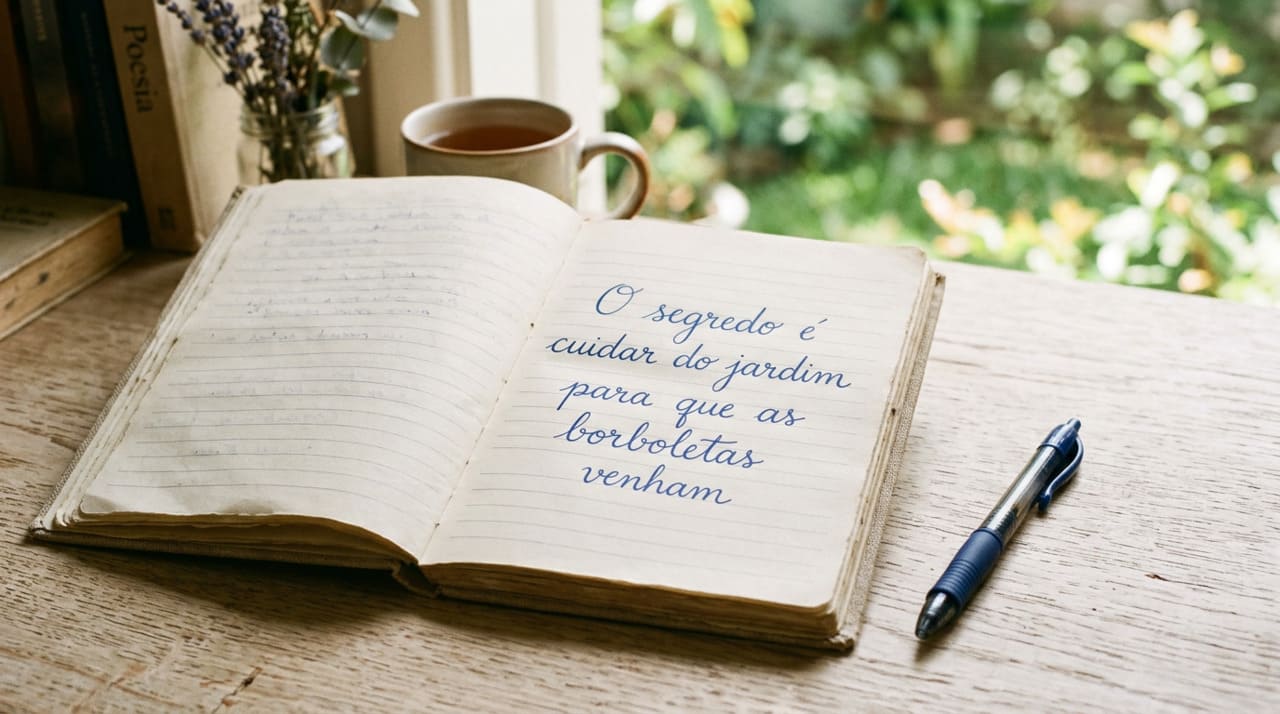 Poesia
O segredo é
cuidar do jardim
para que as
borboletas
venham